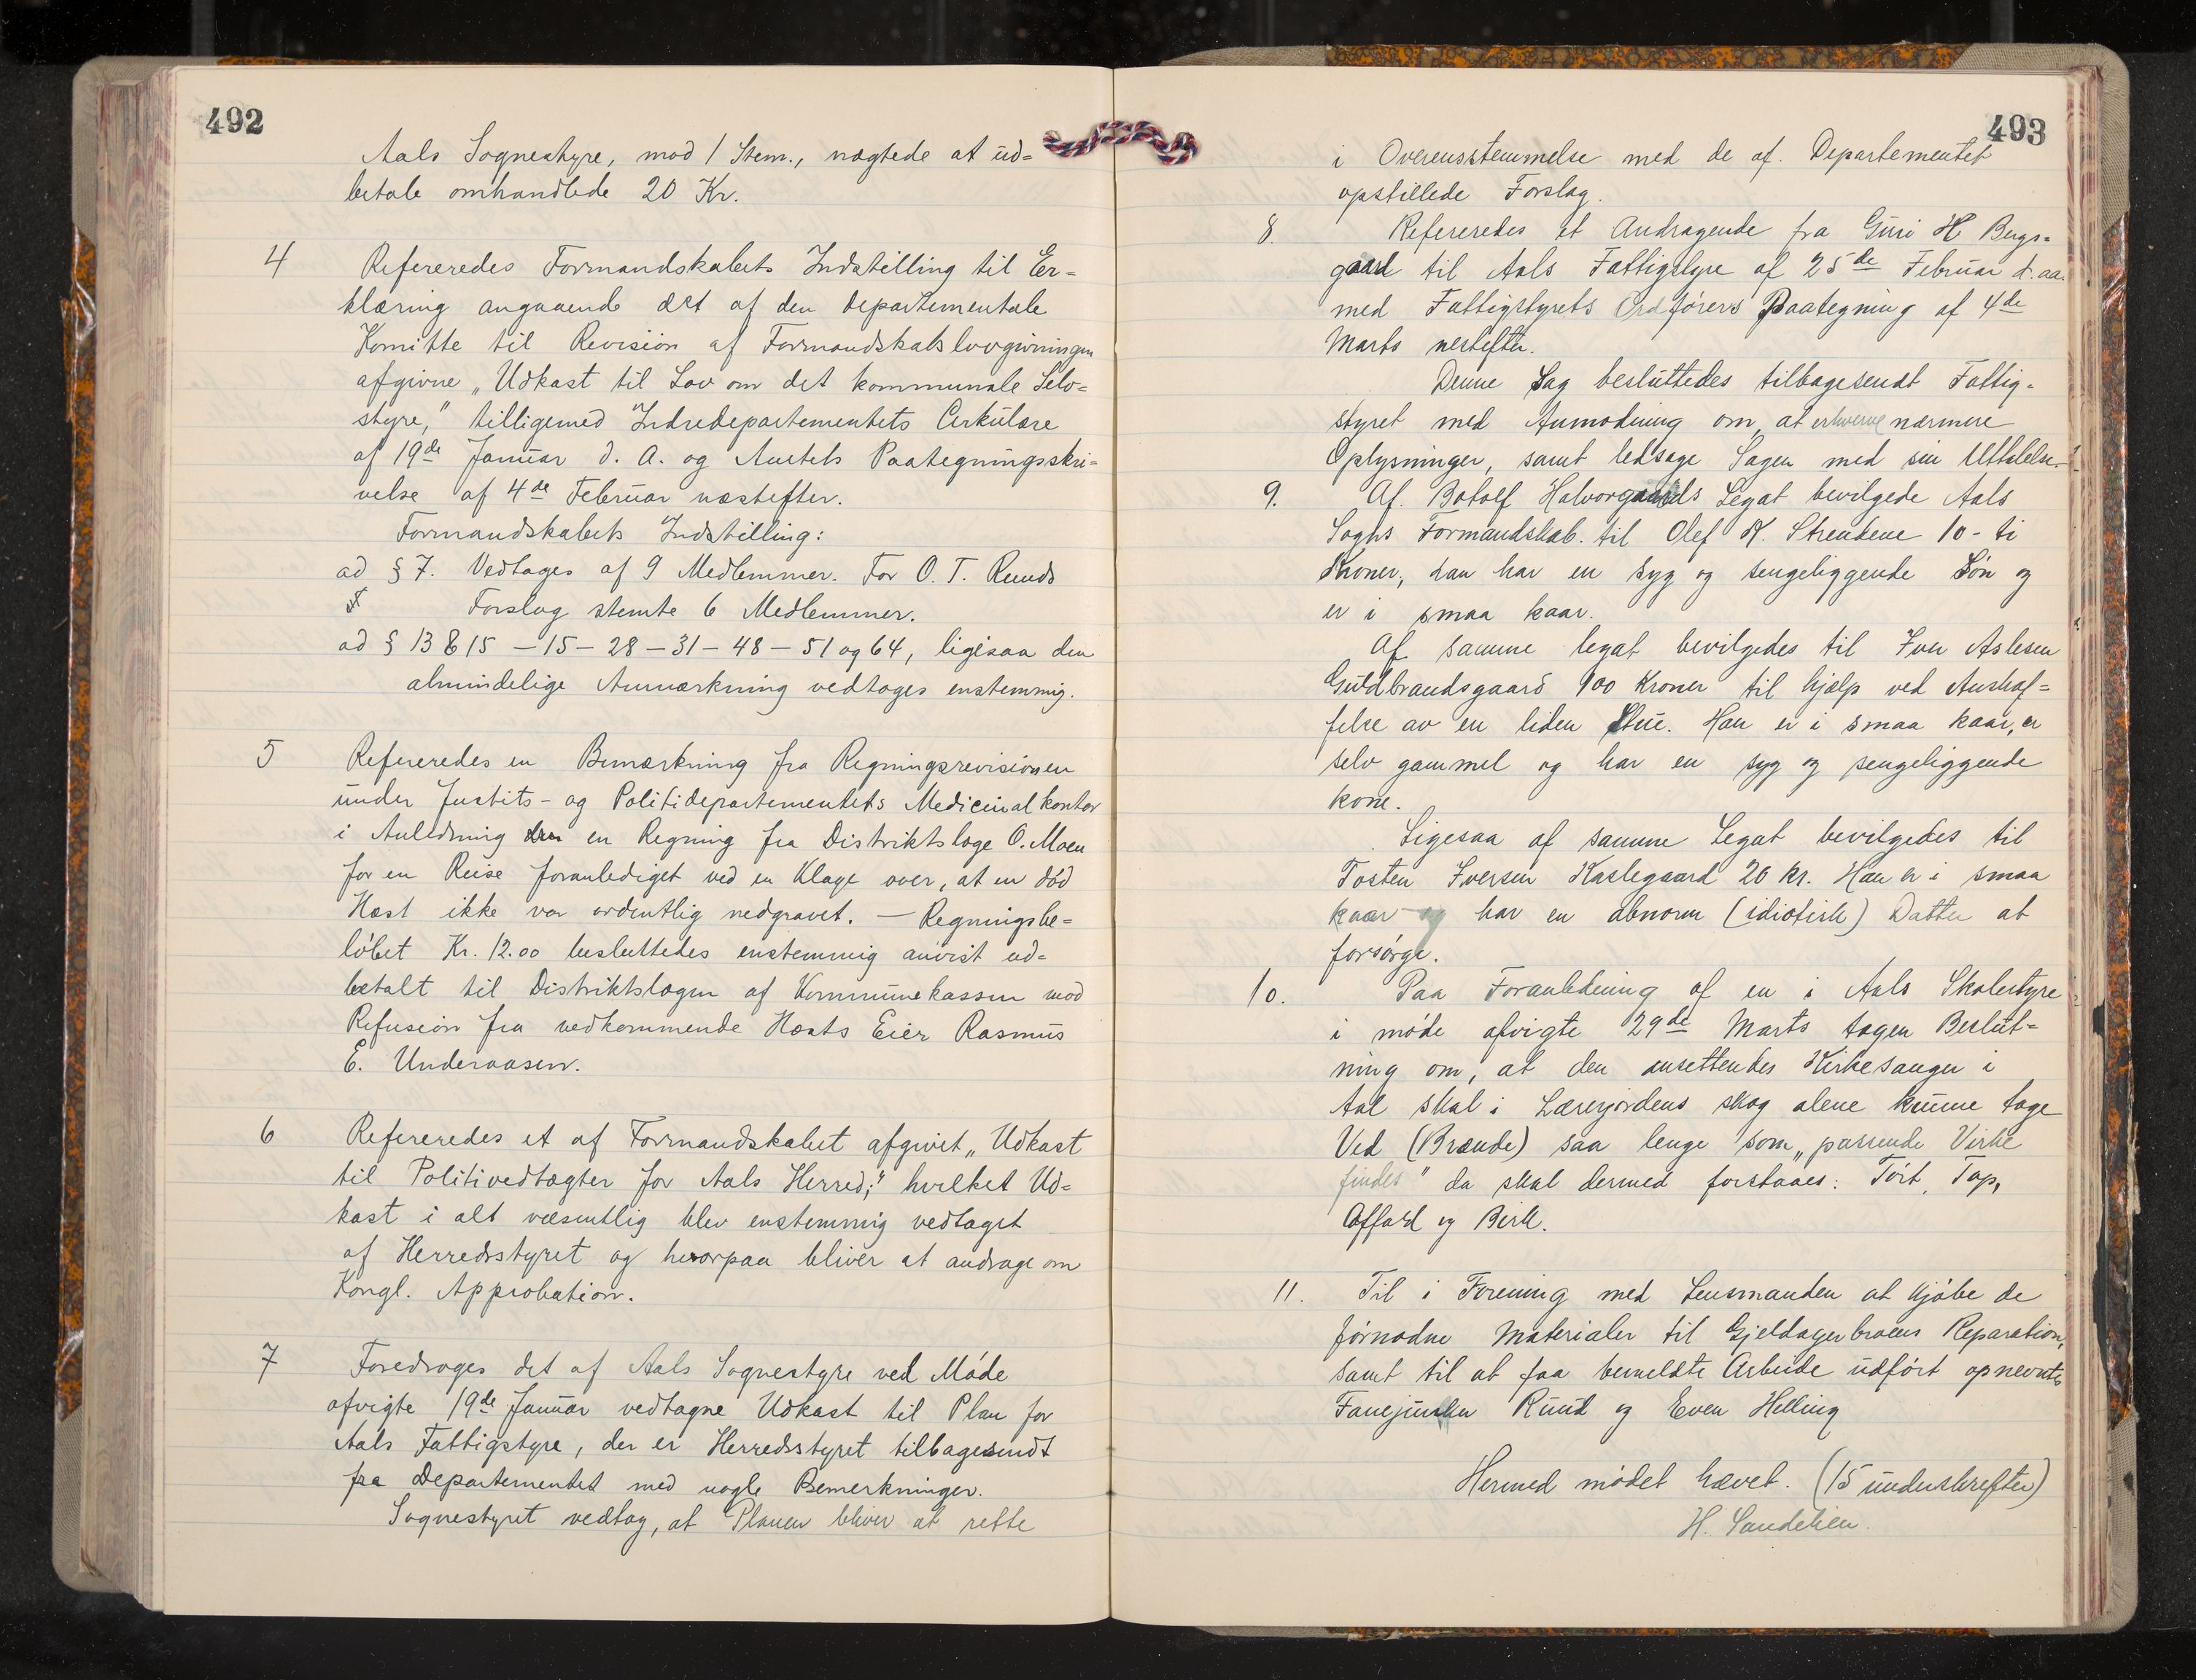 492
Aals Sognestyre, mod 1 Stem., nægtede at ud=
betale omhandlede 20 Kr.
4 Refereredes Formandskabets Indstilling til Er=
klæring angaaende det af den departementale
Komitte til Revision af Formandskabslovgivningen
afgivne „Udkast til Lov om det kommunale Selv=
styre,” tilligemed Indredepartementets Cirkulære
af 19de Januar d. A. og Amtets Paategningsskri=
velse af 4de Februar næstefter.
Formandskabets Indstilling:
ad § 7. Vedtages af 9 Medlemmer. For O. T. Ruuds
Forslag stemte 6 Medlemmer.
ad § 13 & 15 – 15 – 28 – 31 – 48 – 51 og 64, ligesaa den
almindelige Anmærkning vedtages enstemmig.
5 Refereredes en Bemærkning fra Regningsrevisionen
under Justits- og Politidepartementets Medicinalkontor
i Anledning en Regning fra Distriktslæge O. Moen
for en Reise foranlediget ved en Klage over, at en død
Hest ikke var ordentlig nedgravet. – Regningsbe=
løbet Kr. 12.00 besluttedes enstemmig anvist ud=
betalt til Distriktslægen af Kommunekassen mod
Refusion fra vedkommende Hests Eier Rasmus
E. Underaasen.
6 Refereredes et af Formandskabet afgivet „Udkast
til Politivedtægter for Aals Herred;” hvilket Ud=
kast i alt væsentlig blev enstemmig vedtaget
af Herredsstyret og hvorpaa bliver at andrage om
Kongl. Approbation.
7 Foredroges det af Aals Sognestyre ved Møde
afvigte 19de Januar vedtagne Udkast til Plan for
Aals Fattigstyre, der er Herredsstyret tilbagesendt
fra Departementet med nogle Bemerkninger.
Sognestyret vedtog, at Planen bliver at rette
493
i Overensstemmelse med de af Departementet
opstillede Forslag.
8. Refereredes et Andragende fra Guri H Bergs=
gaard til Aals Fattigstyre af 25de Februar d. aa.
med Fattigstyrets Ordførers Paategning af 4de
Marts nestefter.
Denne Sag besluttedes tilbagesendt Fattig=
styret med Anmodning om, at erhverve nærmere
Oplysninger, samt ledsage Sagen med sin Uttalelse.
9. Af Botolf Halvorgaards Legat bevilgede Aals
Sogns Formandskab til Olef K. Strendene 10 - ti
Kroner, han har en syg og sengeliggende Søn og
er i smaa kaar.
Af samme legat bevilgedes til Iver Aslesen
Guldbrandsgaard 100 Kroner til hjælp ved Anskaf=
felse av en liden Stue. Han er i smaa kaar, er
selv gammel og har en syg og sengeliggende
kone.
Ligesaa af samme Legat bevilgedes til
Tosten Iversen Kaslegaard 20 kr. Han er i smaa
kaar og har en abnorm (idiotisk) Datter at
forsørge.
10. Paa Foranledning af en i Aals Skolestyre
i møde afvigte 29de Marts tagen Beslut=
ning om, at den ansettendes Kirkesanger i
Aal skal i Lærerjordens skog alene kunne tage
Ved (Brænde) saa lenge som „passende Virke
findes” da skal dermed forstaaes: Tørt, Top,
Affald og Birk.
11. Til i Forening med Lensmanden at kjøbe de
førnødne Materialer til Gjeldagerbroens Reparation,
samt til at faa bemeldte Arbeide udført opnevntes
Fanejunker Ruud og Even Helling
Hermed mødet hævet. (15 underskrefter)
H. Sandehien.